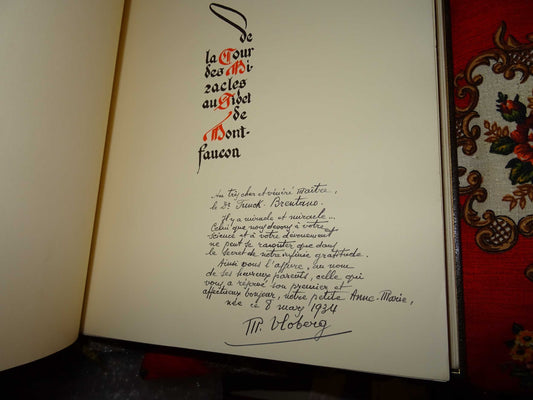 de
la Cour
des Mi-
racles
au Gibet
de
Mont-
faucon
Au très cher et vénéré maître,
le Dr Funck-Brentano.
Il y a miracle et miracle...
Celui que nous devons à votre
science et à votre dévouement
ne peut se raconter que dans
le secret de notre infinie gratitude.
Ainsi vous l'offre, au nom
de ses heureux parents, celle qui
vous a réservé son premier et
affectueux bonjour, notre petite Anne-Marie,
née ce 8 mars 1934
M. Vloberg